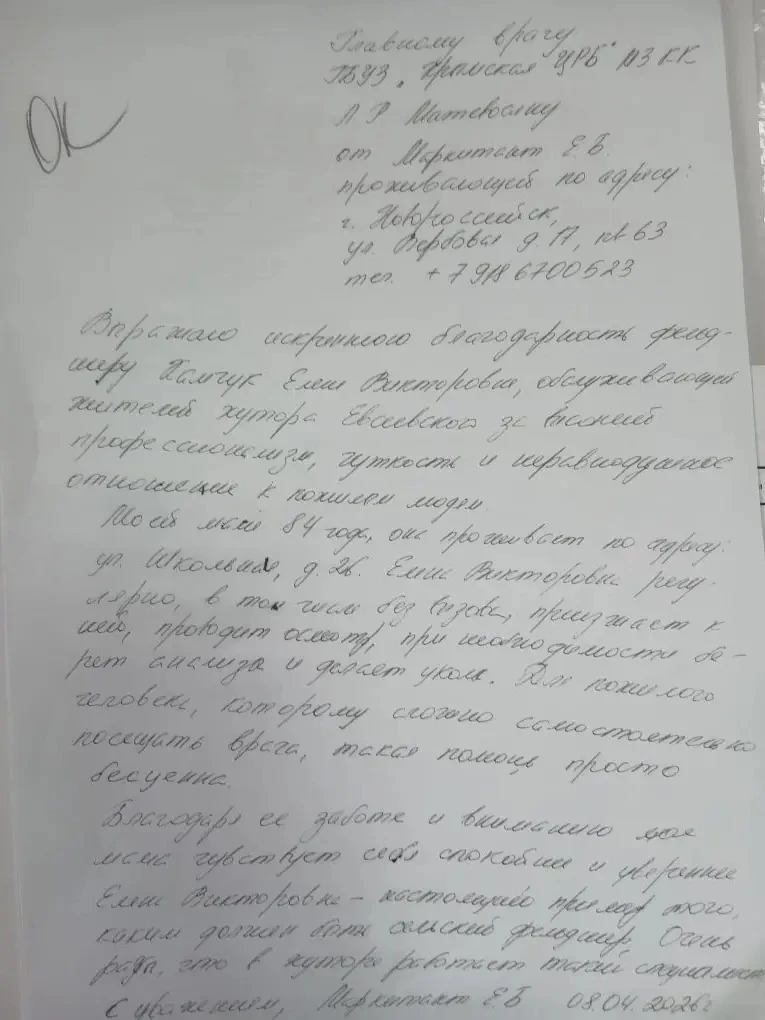 Главному врачу
ГБУЗ "Крымская ЦРБ" МЗ КК
Л Р Матевосяну
ОК
от Маркитант Е.Б.
проживающей по адресу:
г. Новороссийск,
ул. Вербовая д. 17, кв 63
тел. +7 918 6700523
Выражаю искреннюю благодарность фельд-
шеру Хамчук Елене Викторовне, обслуживающей
жителей хутора Евсеевского за высокий
профессионализм, чуткость и неравнодушное
отношение к пожилым людям.
Моей маме 84 года, она проживает по адресу:
ул. Школьная, д. 26. Елена Викторовна регу-
лярно, в том числе без вызова, приезжает к
ней, проводит осмотр, при необходимости бе-
рет анализы и делает уколы. Для пожилого
человека, которому сложно самостоятельно
посещать врача, такая помощь просто
бесценна.
Благодаря ее заботе и вниманию моя
мама чувствует себя спокойнее и увереннее
Елена Викторовна - настоящий пример того,
каким должен быть сельский фельдшер. Очень
рада, что в хуторе работает такой специалист
С уважением, Маркитант Е.Б 08.04.2026г